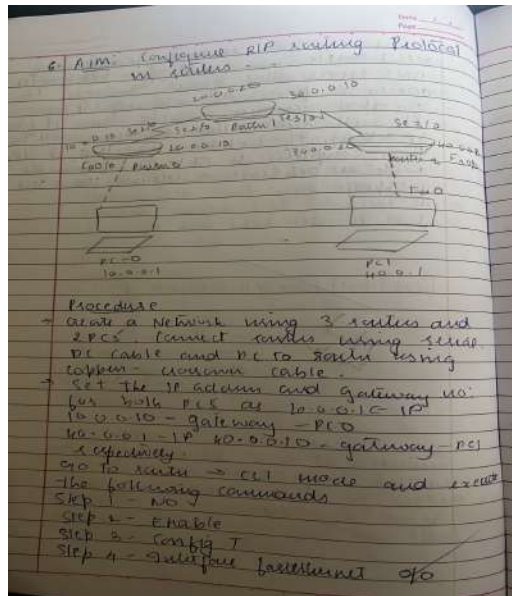 6. AIM: Configure RIP routing Protocol
in routers.
20.0.0.20 30.0.0.10
Se2/0 Se2/0 Router 1 Se3/0 Se2/0
10.0.0.10 20.0.0.10 30.0.0.20
Fa0/0 Router 0 Router 2
Fa0
PC-0 PC1
10.0.0.1 40.0.0.1
Procedure
→ Create a Network using 3 routers and
2 PCS. Connect routers using serial
DC cable and PC to router using
copper- cable.
→ Set the IP address and gateway no:
for both PCS as 10.0.0.1 - IP
10.0.0.10 - gateway - PC0
40.0.0.1 - IP 40.0.0.10 - gateway - PC1
respectively.
Go to router → CLI mode and execute
the following commands
Step 1 - NO
Step 2 - Enable
Step 3 - Config T
Step 4 - Interface fastethernet 0/0